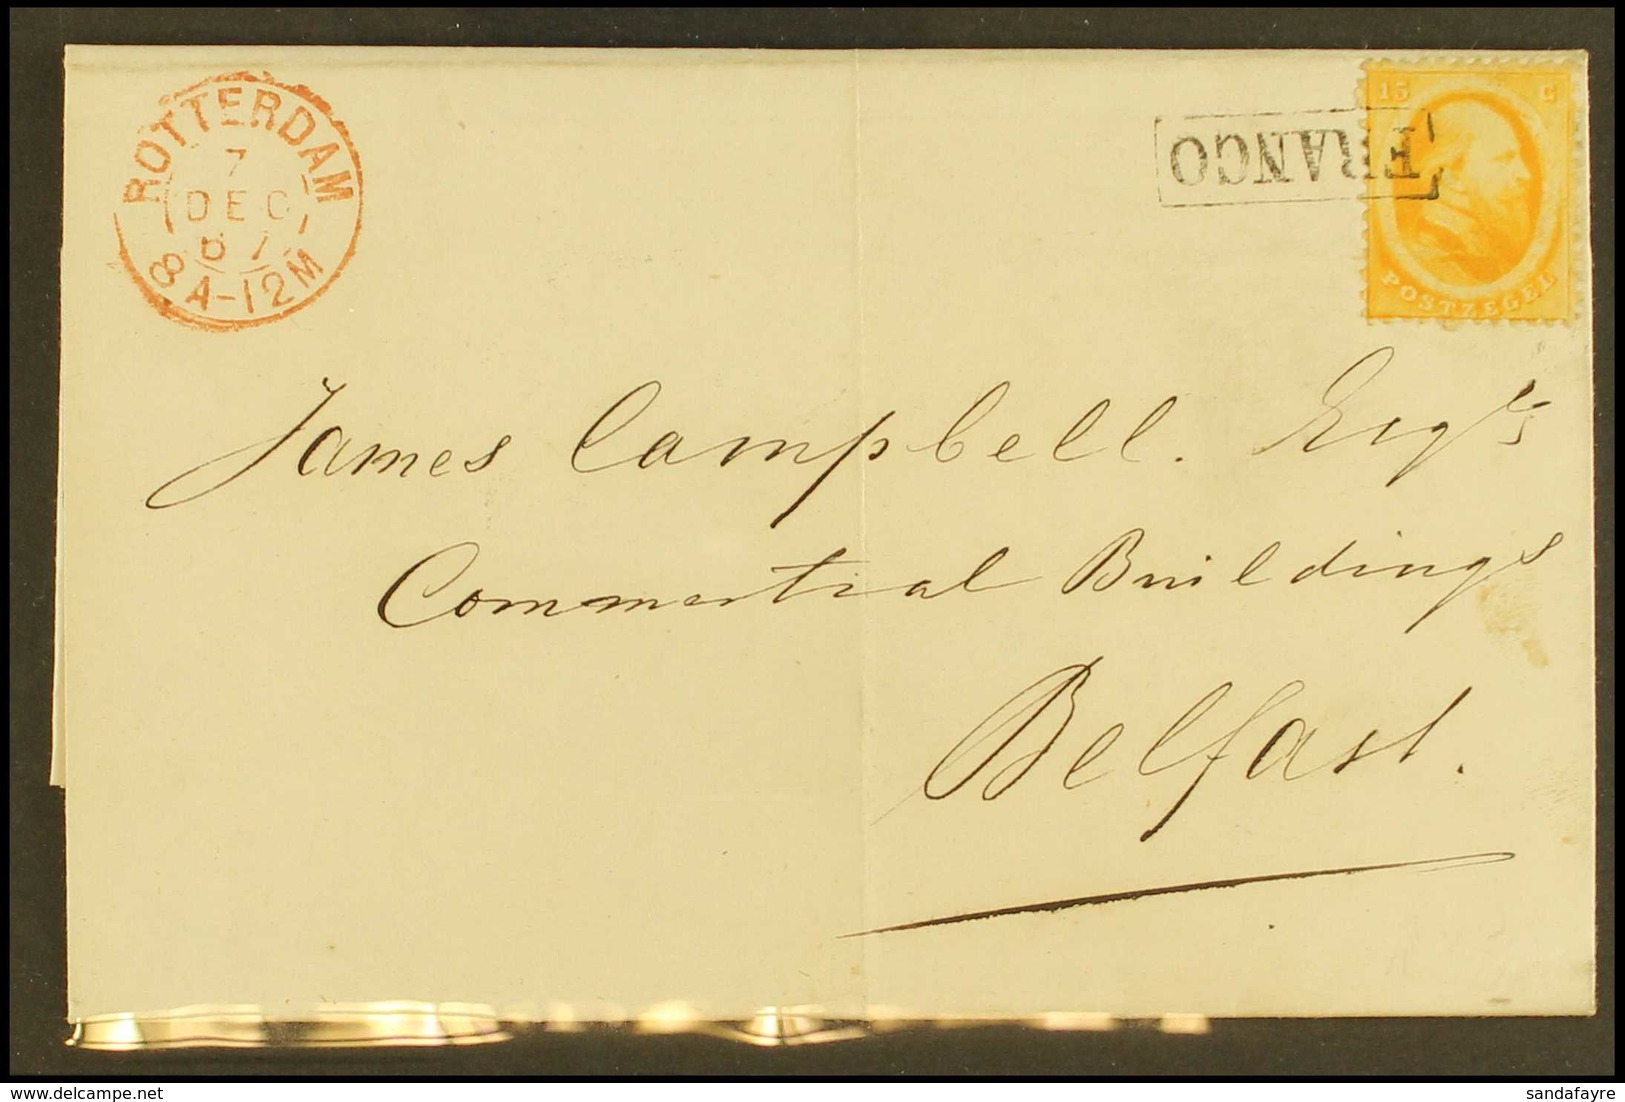 ROTTERDAM
7
DEC
67
8 A-12M
FRANCO
15 C
POSTZEGEL
James Campbell. Esqrs
Commertial Buildings
Belfast.
sandafayre